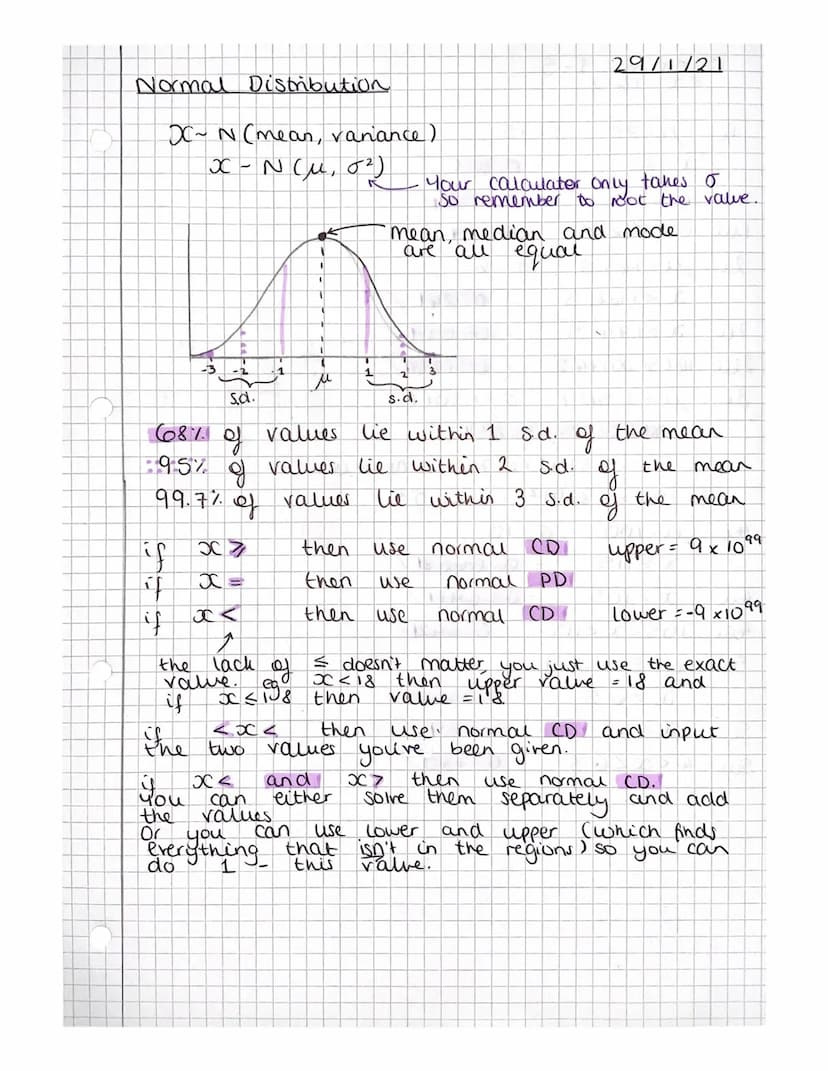 29/1/21
Normal Distribution
X~ N(mean, variance)
x - N(μ, σ²)
Your calculator only takes σ
so remember to root the value.
mean, median and mode
are all equal
-3 -2 -1 μ 1 2 3
s.d. s.d.
68% of values lie within 1 s.d. of the mean
95% of values lie within 2 s.d. of the mean
99.7% of values lie within 3 s.d. of the mean
if x ⩾ then use normal CD upper = 9 x 10⁹⁹
if x = then use normal PD
if x < then use normal CD lower = -9 x10⁹⁹
the lack of ≤ doesn't matter, you just use the exact
value. eg x<18 then upper value = 18 and
if x ≤ 18 then value = 18
if < x < then use normal CD and input
the two values you've been given.
if x < and x > then use normal CD.
You can either solve them separately and add
the values
Or you can use lower and upper (which finds
everything that isn't in the regions) so you can
do 1 - this value.